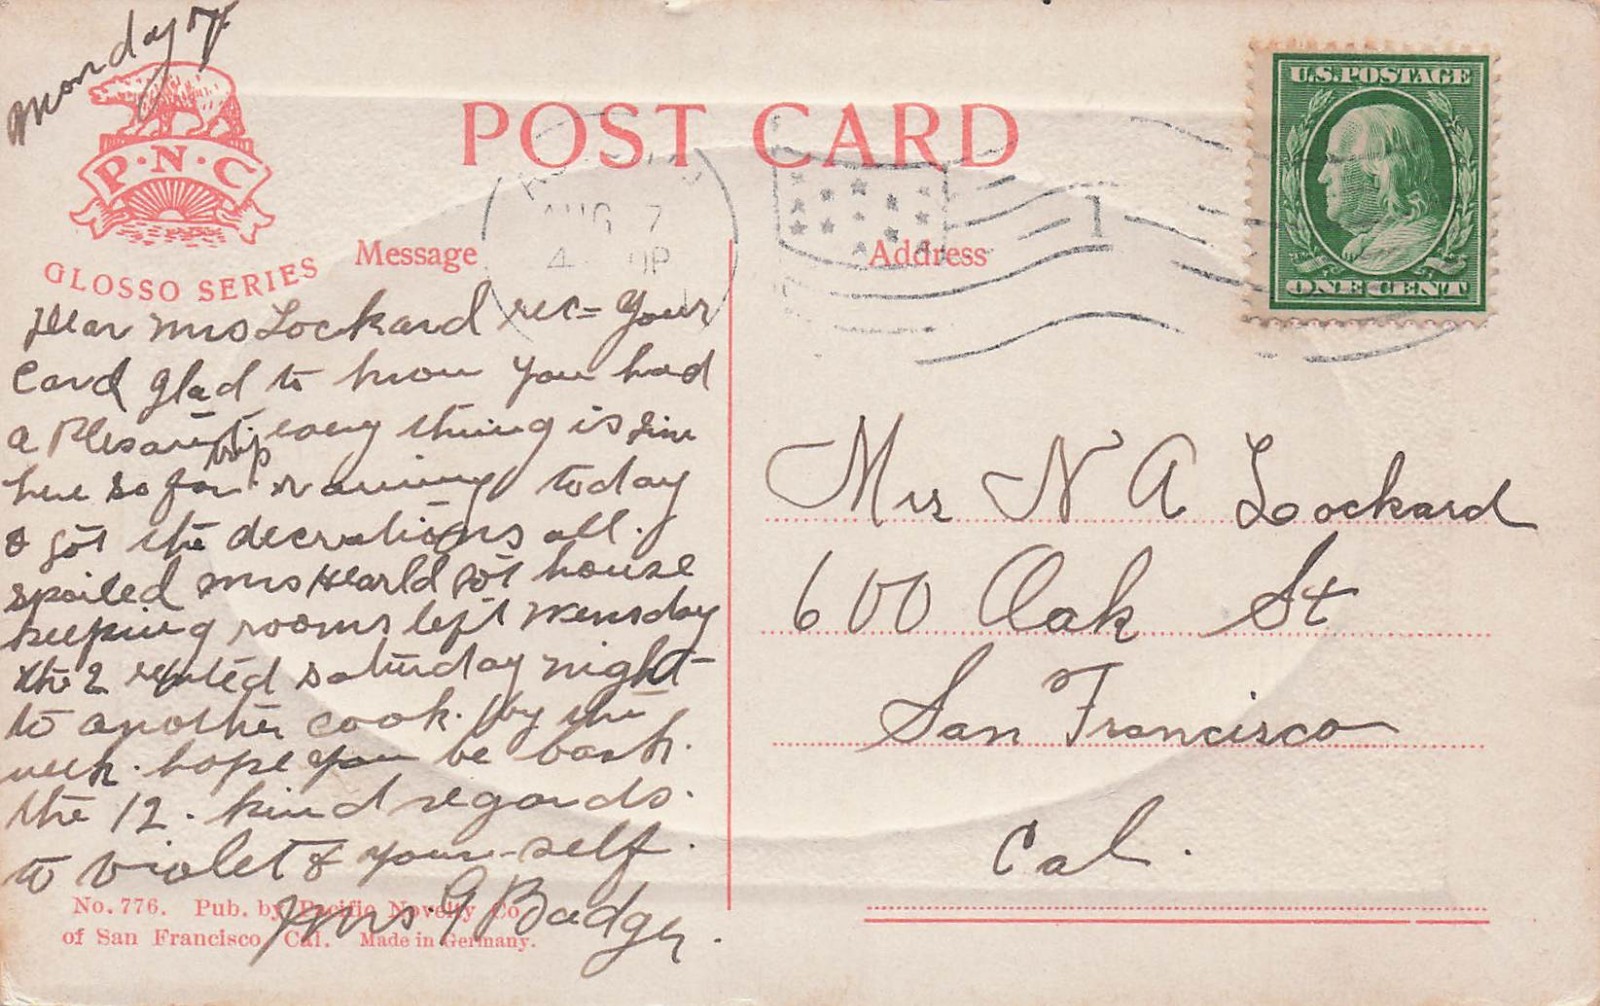 Monday 7
P·N·C
GLOSSO SERIES
POST CARD
Message
AUG 7
4
Address
1
U.S. POSTAGE
ONE CENT
Dear Mrs Lockard rec= your
Card glad to know you had
a Plesant trip every thing is fine
here so far raining today
& got the decrations all.
spoiled Mrs Hearld got house
keeping rooms left Wensday
the 2 rented saturday night
to another cook. by the
week. hope you be back.
the 12. kind regards.
to violet & your-self.
Mrs. G Badger.
No. 776. Pub. by Pacific Novelty Co.
of San Francisco, Cal. Made in Germany.
Mrs N A Lockard
600 Oak St
San Francisco
Cal.